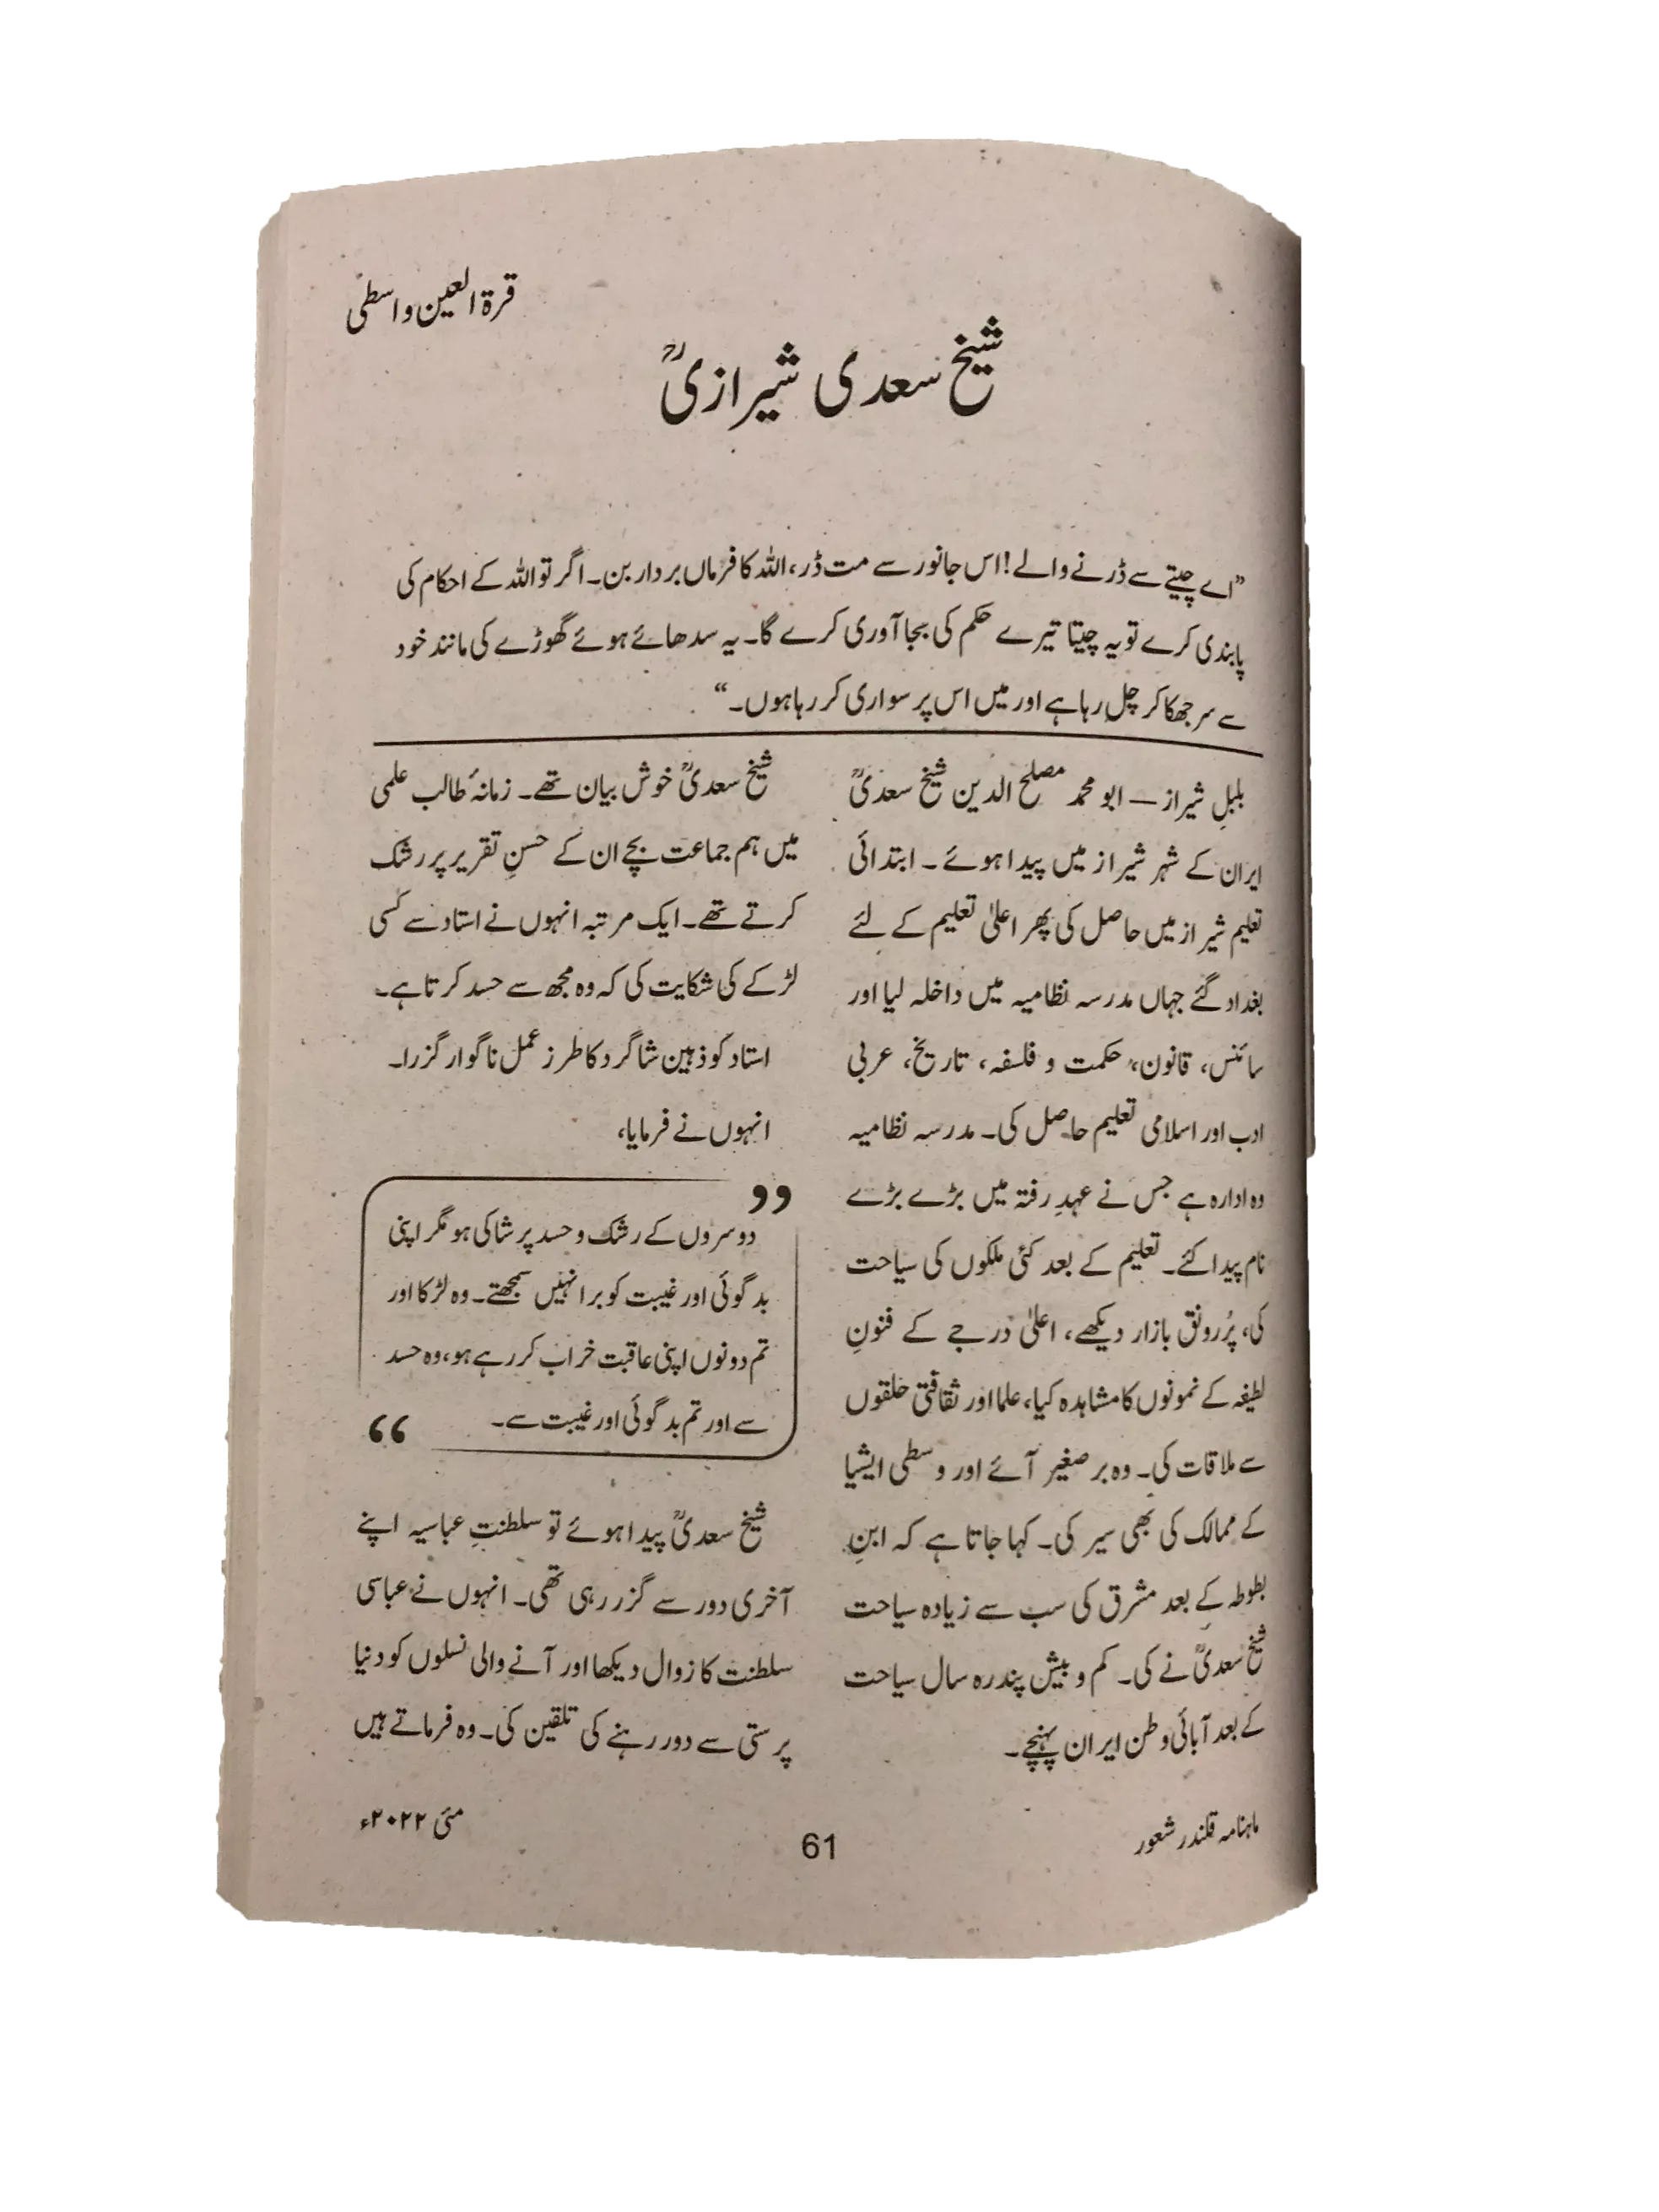 قرۃ العین واسطی
شیخ سعدی شیرازیؒ
”اے چیتے سے ڈرنے والے! اس جانور سے مت ڈر، اللہ کا فرماں بردار بن۔ اگر تو اللہ کے احکام کی
پابندی کرے تو یہ چیتا تیرے حکم کی بجا آوری کرے گا۔ یہ سدھائے ہوئے گھوڑے کی مانند خود
سے سر جھکا کر چل رہا ہے اور میں اس پر سواری کر رہا ہوں۔“
بلبلِ شیراز — ابو محمد مصلح الدین شیخ سعدیؒ
ایران کے شہر شیراز میں پیدا ہوئے ۔ ابتدائی
تعلیم شیراز میں حاصل کی پھر اعلیٰ تعلیم کے لئے
بغداد گئے جہاں مدرسہ نظامیہ میں داخلہ لیا اور
سائنس، قانون، حکمت و فلسفہ، تاریخ، عربی
ادب اور اسلامی تعلیم حاصل کی۔ مدرسہ نظامیہ
وہ ادارہ ہے جس نے عہدِ رفتہ میں بڑے بڑے
نام پیدا کئے۔ تعلیم کے بعد کئی ملکوں کی سیاحت
کی، پُررونق بازار دیکھے، اعلیٰ درجے کے فنونِ
لطیفہ کے نمونوں کا مشاہدہ کیا، علما اور ثقافتی حلقوں
سے ملاقات کی۔ وہ برصغیر آئے اور وسطی ایشیا
کے ممالک کی بھی سیر کی۔ کہا جاتا ہے کہ ابنِ
بطوطہ کے بعد مشرق کی سب سے زیادہ سیاحت
شیخ سعدیؒ نے کی۔ کم و بیش پندرہ سال سیاحت
کے بعد آبائی وطن ایران پہنچے۔
شیخ سعدیؒ خوش بیان تھے۔ زمانۂ طالب علمی
میں ہم جماعت بچے ان کے حسنِ تقریر پر رشک
کرتے تھے۔ ایک مرتبہ انہوں نے استاد سے کسی
لڑکے کی شکایت کی کہ وہ مجھ سے حسد کرتا ہے۔
استاد کو ذہین شاگرد کا طرز عمل ناگوار گزرا۔
انہوں نے فرمایا،
”دوسروں کے رشک و حسد پر شاکی ہو مگر اپنی
بدگوئی اور غیبت کو برا نہیں سمجھتے۔ وہ لڑکا اور
تم دونوں اپنی عاقبت خراب کر رہے ہو، وہ حسد
سے اور تم بدگوئی اور غیبت سے۔“
شیخ سعدیؒ پیدا ہوئے تو سلطنتِ عباسیہ اپنے
آخری دور سے گزر رہی تھی۔ انہوں نے عباسی
سلطنت کا زوال دیکھا اور آنے والی نسلوں کو دنیا
پرستی سے دور رہنے کی تلقین کی۔ وہ فرماتے ہیں
ماہنامہ قلندر شعور
61
مئی ۲۰۲۲ء